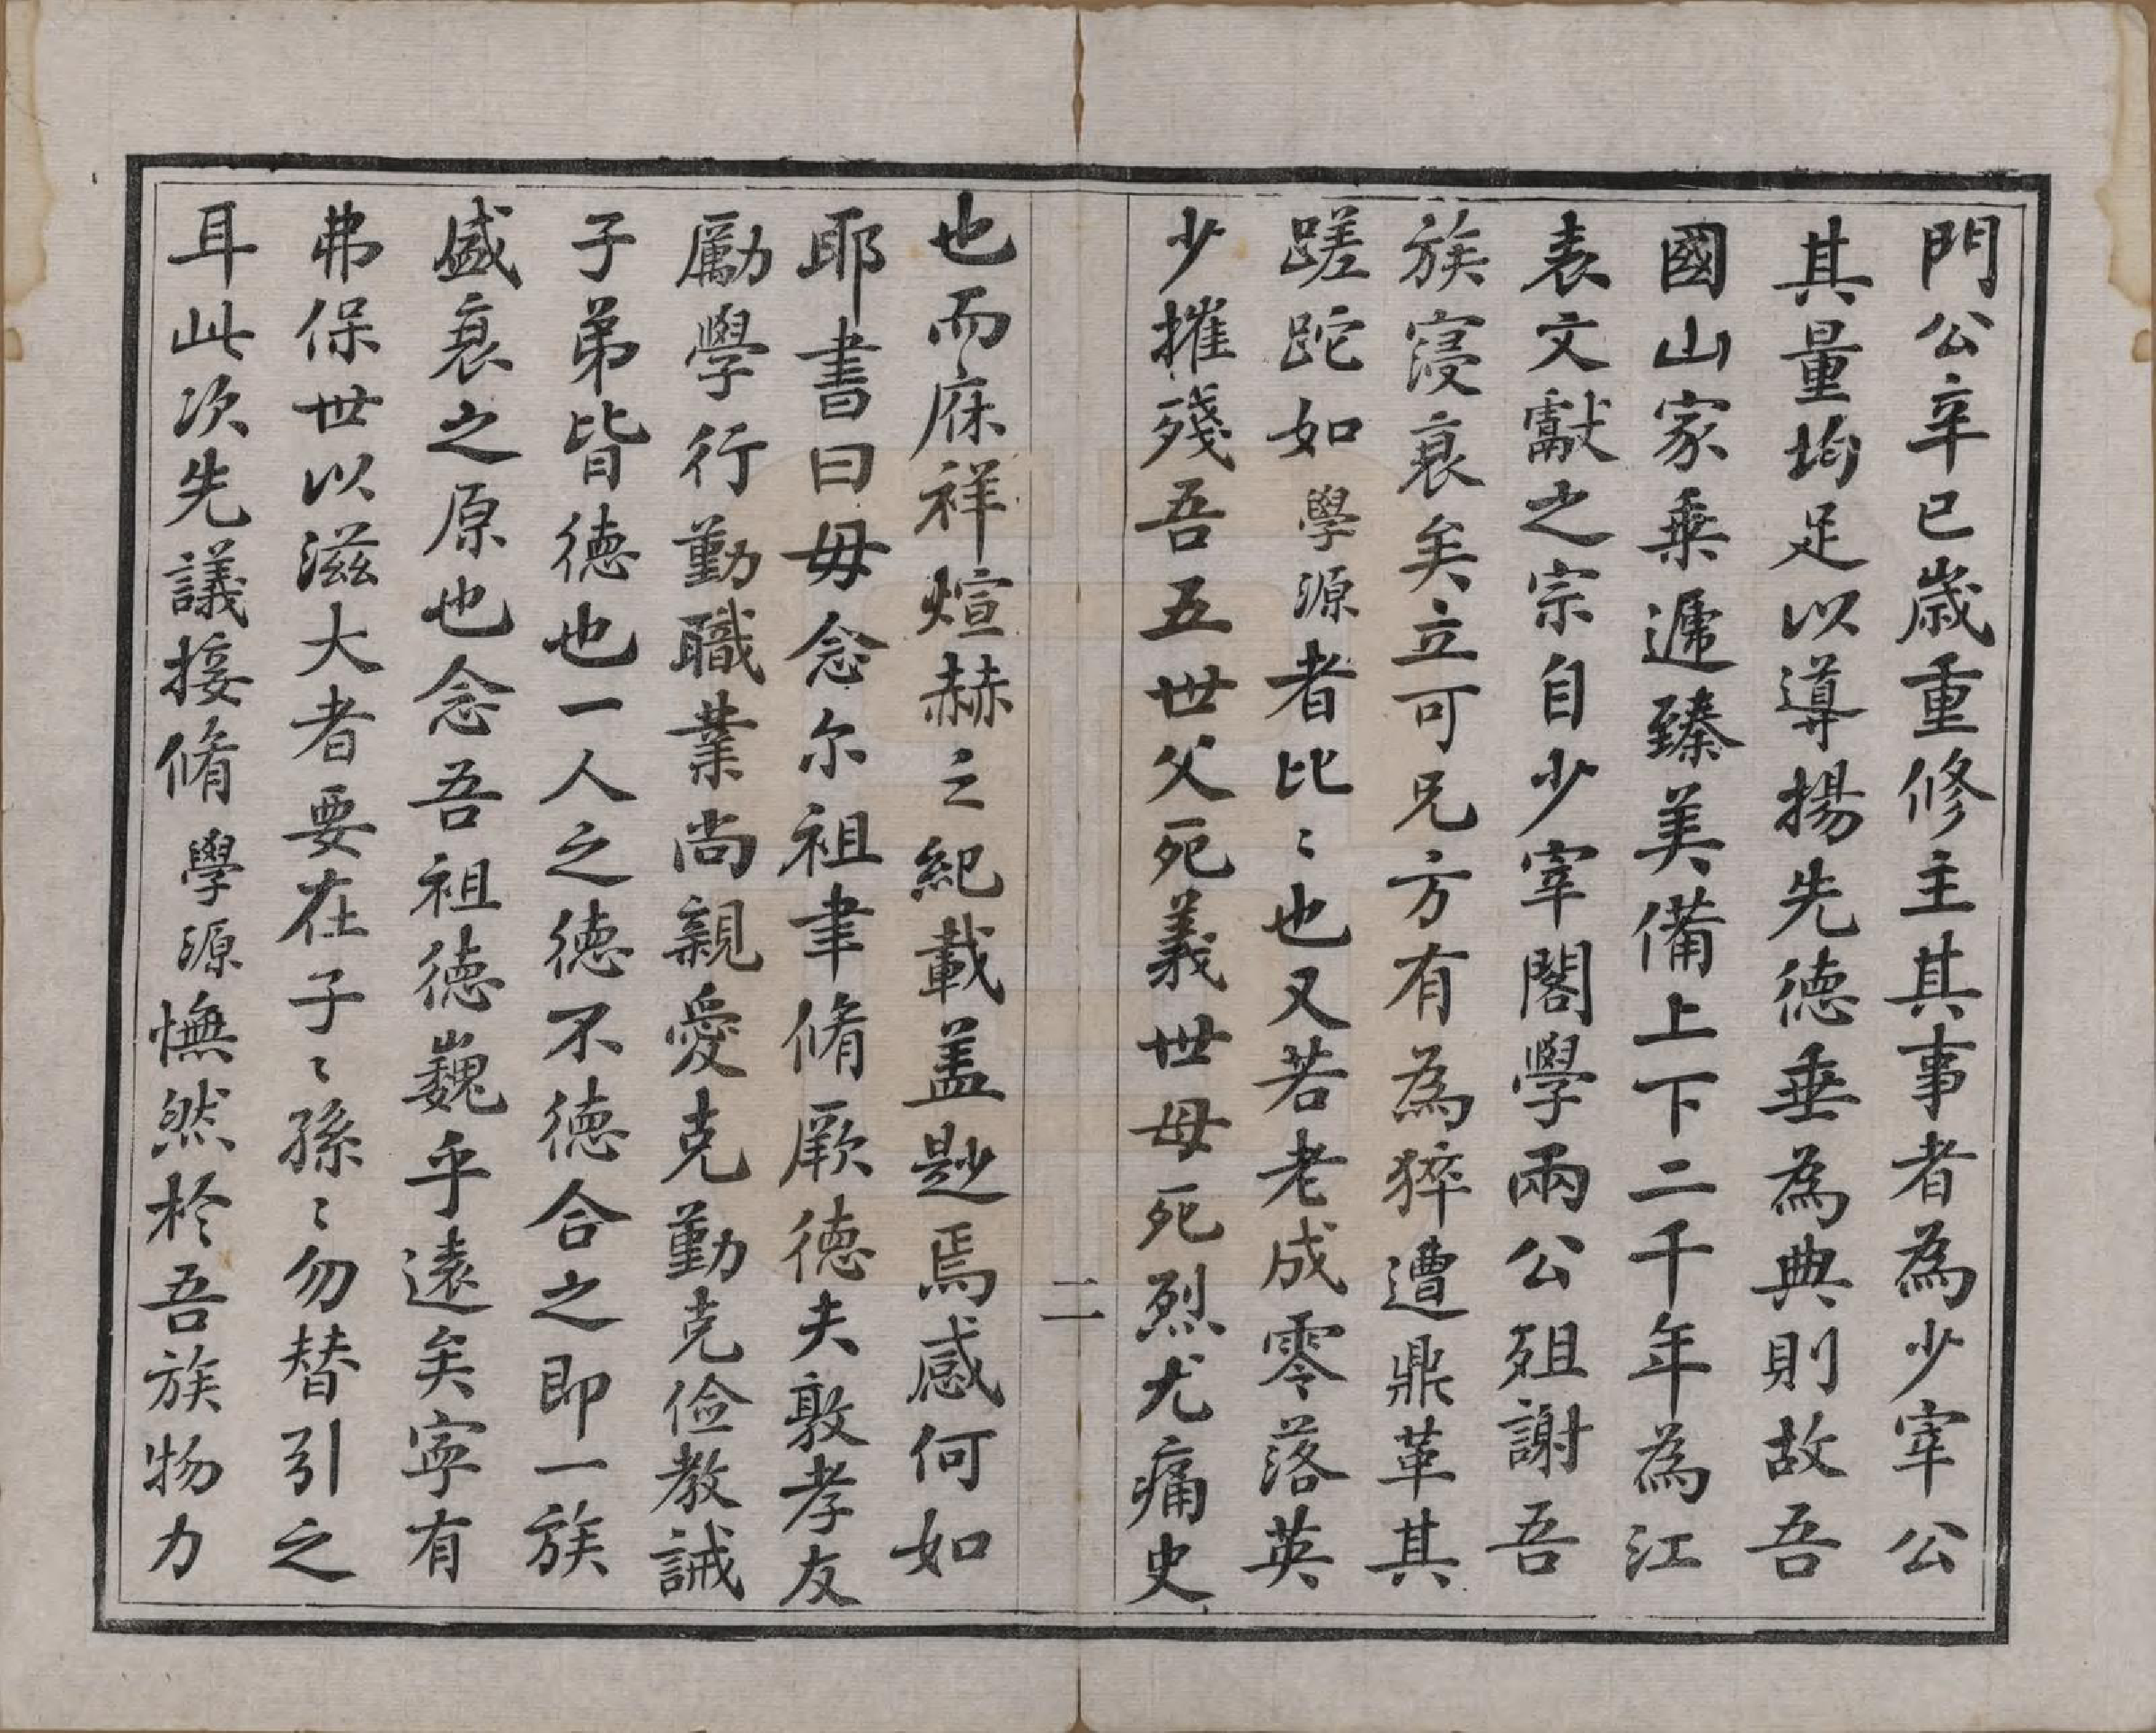 門公辛巳歲重修主其事者為少宰公
其量均足以導揚先德垂為典則故吾
國山家乘遞臻美備上下二千年為江
表文獻之宗自少宰閣學兩公殂謝吾
族寖衰矣立可兄方有為猝遭鼎革其
蹉跎如學源者比〻也又若老成零落英
少摧殘吾五世父死義世母死烈尤痛史
二
也而庥祥煊赫之紀載盖尟焉感何如
耶書曰毋念尔祖聿脩厥德夫敦孝友
勵學行勤職業尚親愛克勤克儉教誡
子弟皆德也一人之德不德合之即一族
盛衰之原也念吾祖德巍乎遠矣寧有
弗保世以滋大者要在子〻孫〻勿替引之
耳此次先議接脩學源憮然於吾族物力